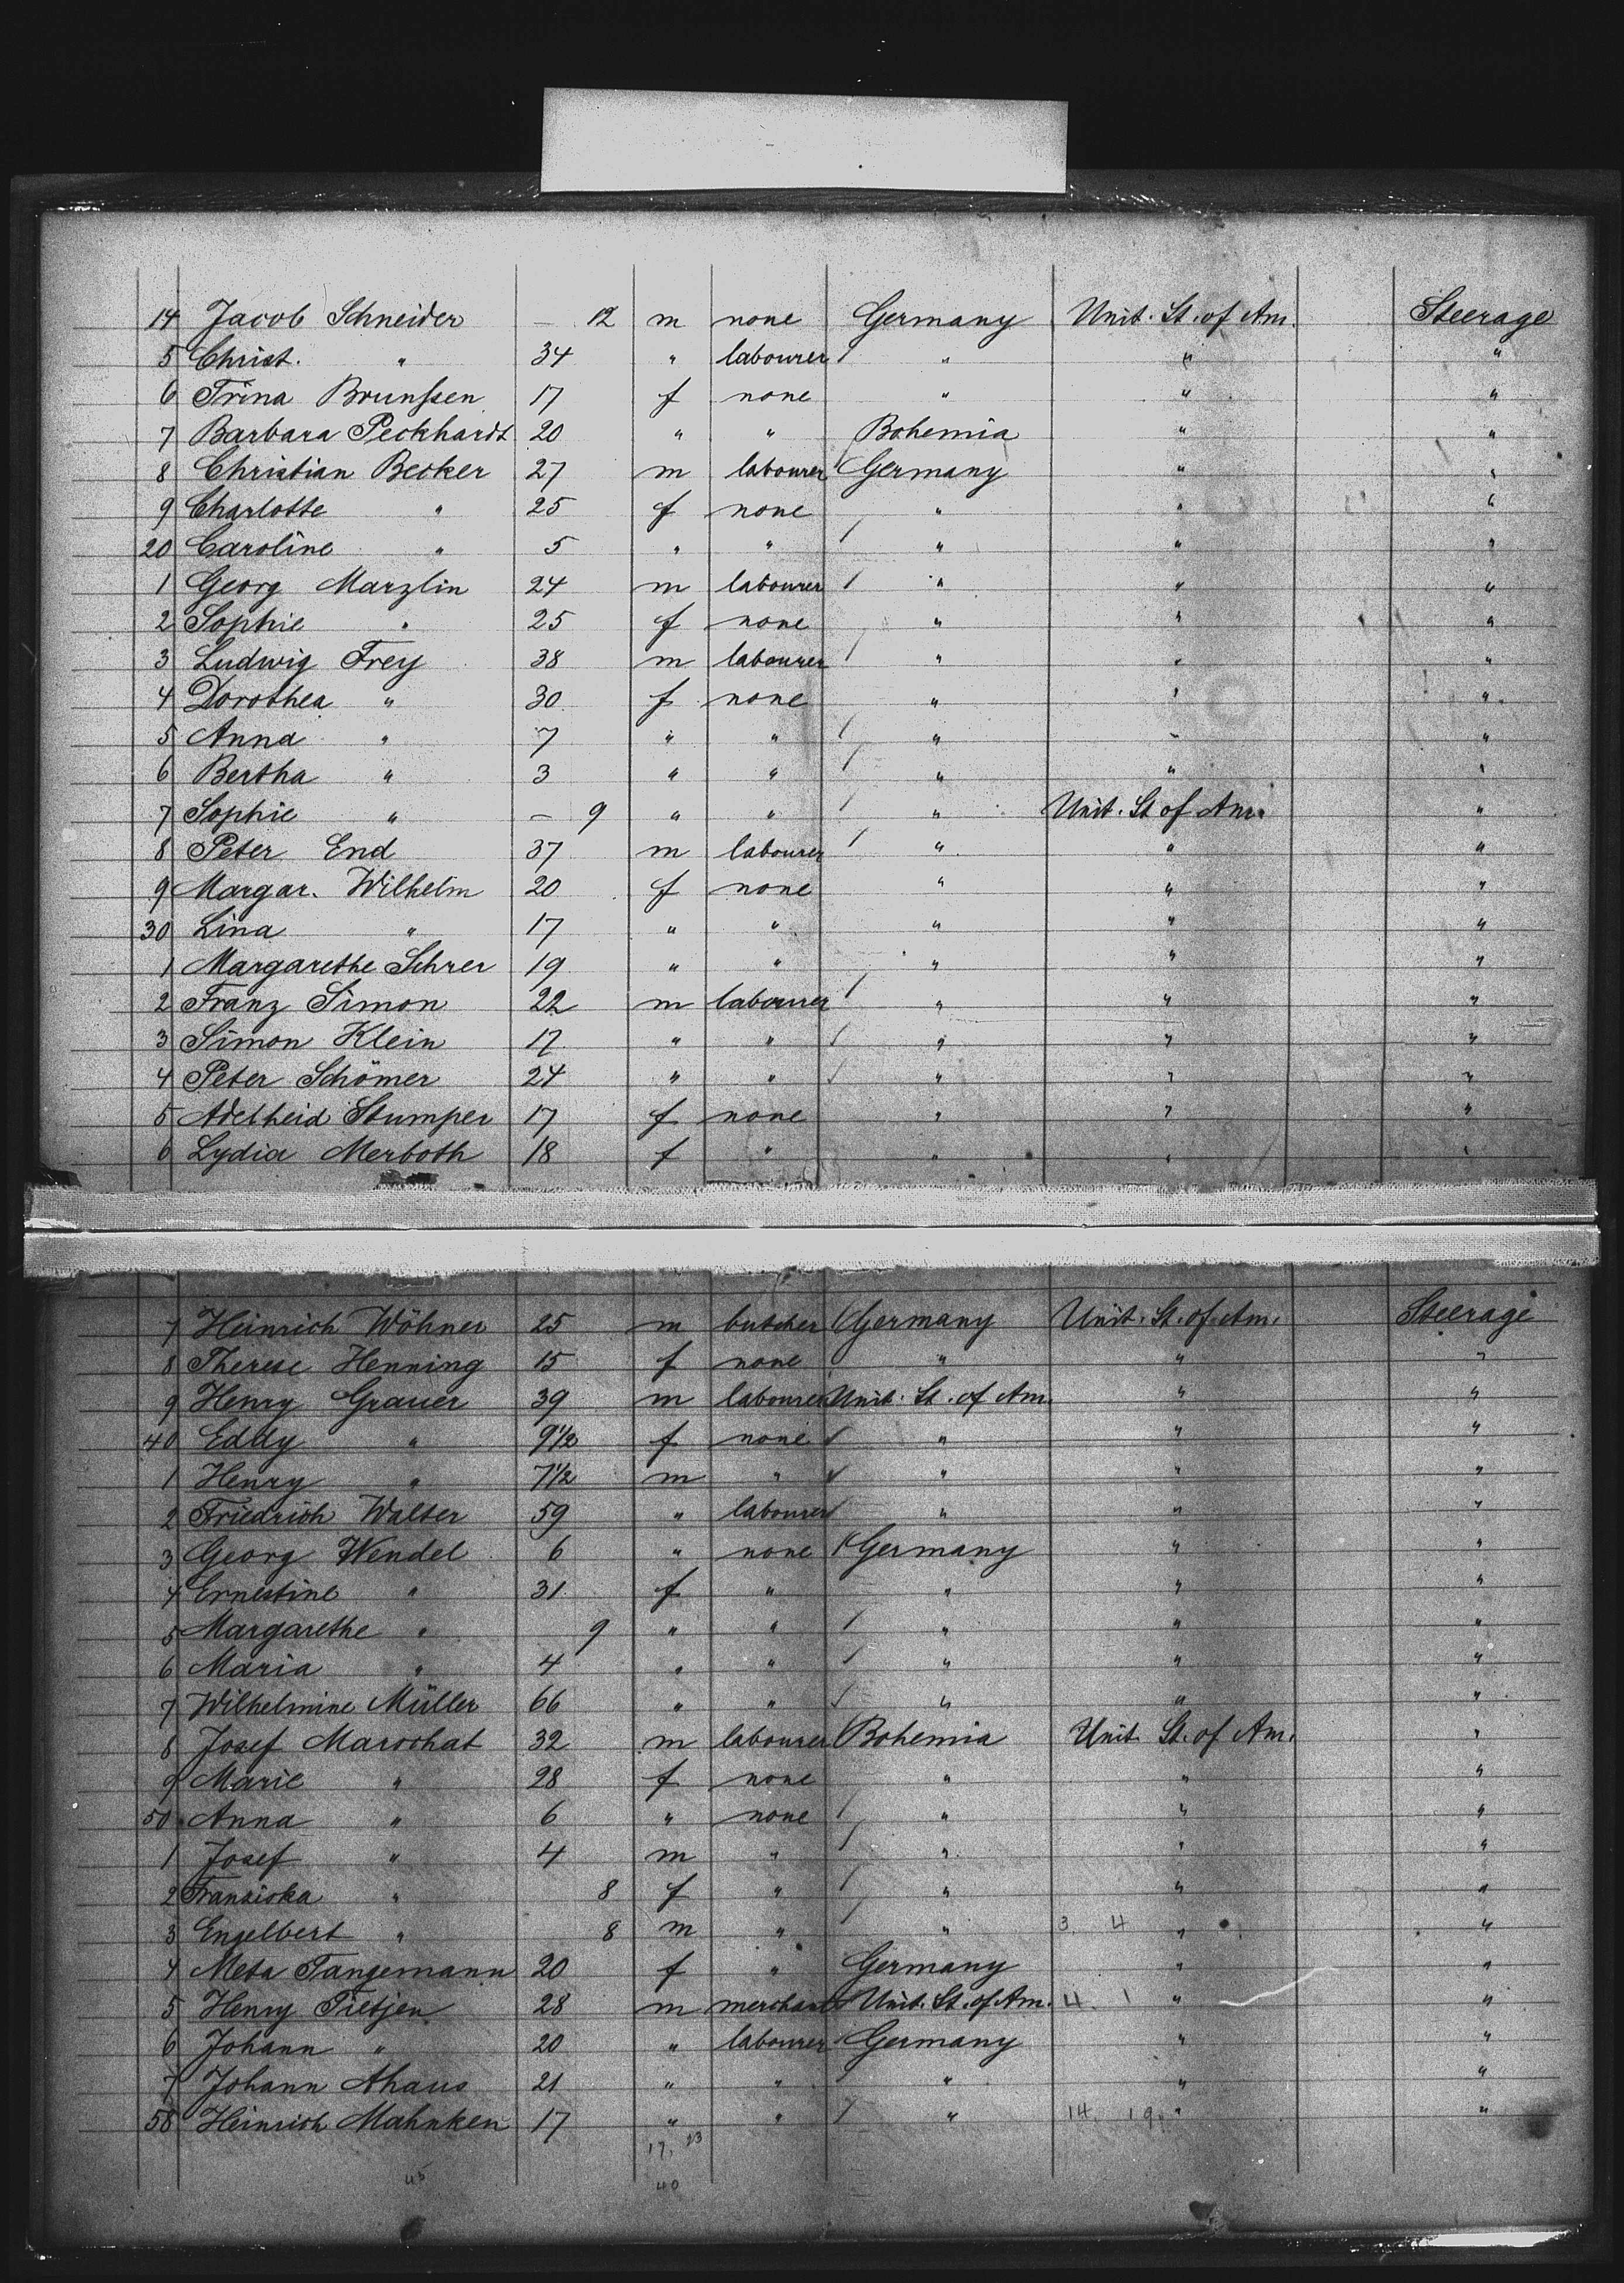 14 Jacob Schneider — 12 m none Germany Unit. St. of Am. Steerage
5 Christ. " 34 " labourer " " "
6 Trina Brunssen 17 f none " " "
7 Barbara Peckhardt 20 " " Bohemia " "
8 Christian Becker 27 m labourer Germany " "
9 Charlotte " 25 f none " " "
20 Caroline " 5 " " " " "
1 Georg Marzlin 24 m labourer " " "
2 Sophie " 25 f none " " "
3 Ludwig Frey 38 m labourer " " "
4 Dorothea " 30 f none " " "
5 Anna " 7 " " " " "
6 Bertha " 3 " " " " "
7 Sophie " — 9 " " " Unit. St of Am. "
8 Peter End 37 m labourer " " "
9 Margar. Wilhelm 20 f none " " "
30 Lina " 17 " " " " "
1 Margarethe Schrer 19 " " " " "
2 Franz Simon 22 m labourer " " "
3 Simon Klein 17 " " " " "
4 Peter Schömer 24 " " " " "
5 Adelheid Stumper 17 f none " " "
6 Lydia Merboth 18 f " " " "
7 Heinrich Wöhner 25 m butcher Germany Unit. St. of Am. Steerage
8 Therese Henning 15 f none " " "
9 Henry Grauer 39 m labourer Unit. St. of Am. " "
40 Eddy " 9 1/2 f none " " "
1 Henry " 7 1/2 m " " " "
2 Friedrich Walter 59 " labourer " " "
3 Georg Wendel 6 " none Germany " "
4 Ernestine " 31 f " " " "
5 Margarethe " 9 " " " " "
6 Maria " 4 " " " " "
7 Wilhelmine Müller 66 " " " " "
8 Josef Marochat 32 m labourer Bohemia Unit. St. of Am. "
9 Marie " 28 f none " " "
50 Anna " 6 " none " " "
1 Josef " 4 m " " " "
2 Fransiska " 8 f " " " "
3 Engelbert " 8 m " " 3. 4 " "
4 Meta Tangemann 20 f " Germany " "
5 Henry Tietjen 28 m merchant Unit. St. of Am. 4. 1 " "
6 Johann " 20 " labourer Germany " "
7 Johann Ahaus 21 " " " " "
58 Heinrich Mahnken 17 " " " 14. 19. " "
17. 23
45 40